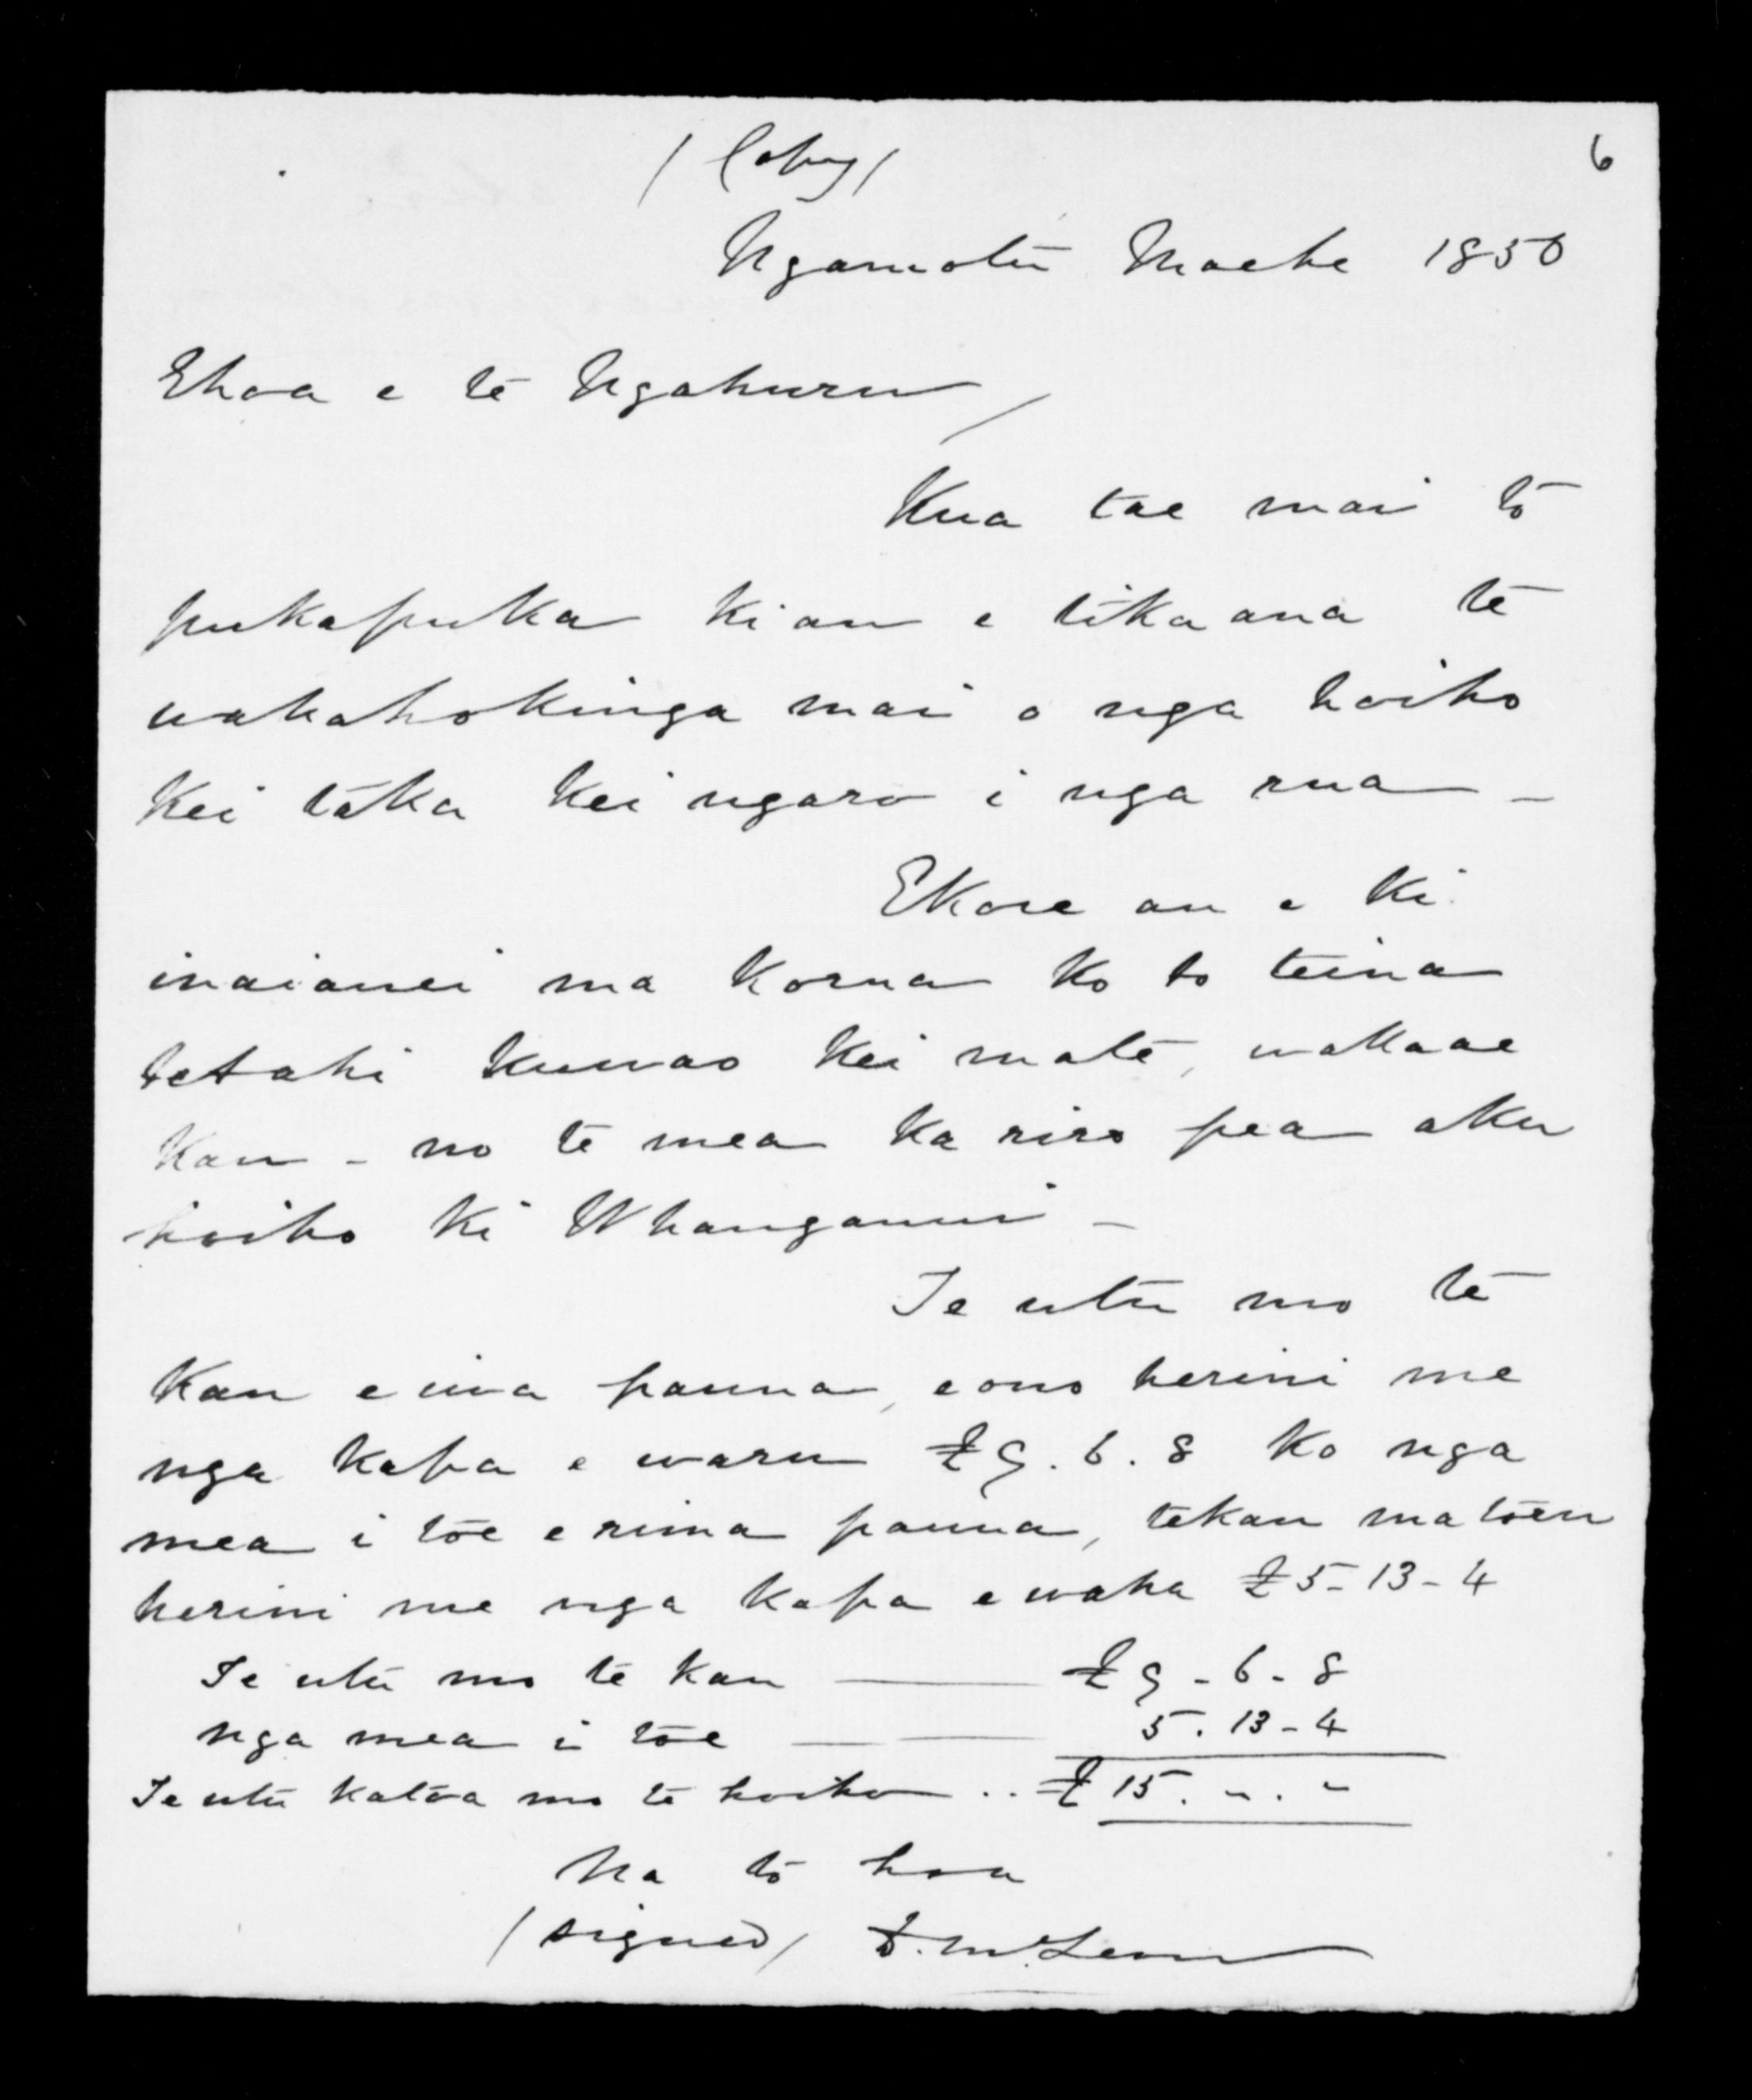 (Copy) 6
Ngamotu Maehe 1850
Ehoa e te Ngahuru/
Kua tae mai to
pukapuka kiau e tika ana te
wakahokinga mai o nga hoiho
kei taka kei ngaro i nga rua -
Ekore au e ki
inaianei ma korua ko to teina
tetahi kuwao kei mate, wakaae
kau - no te mea ka riro pea aku
hoiho ki Whanganui -
Te utu mo te
Kau e iwa pauna, e ono herini me
nga kapa e waru £9.6.8 ko nga
mea i toe e rima pauna, tekau ma toru
herini me nga kapa e waha £5-13-4
Te utu mo te kau — £9-6-8
nga mea i toe — — 5.13-4
Te utu katoa mo te hoiho .. £15. " . "
Na to hoa
(signed) D. McLean